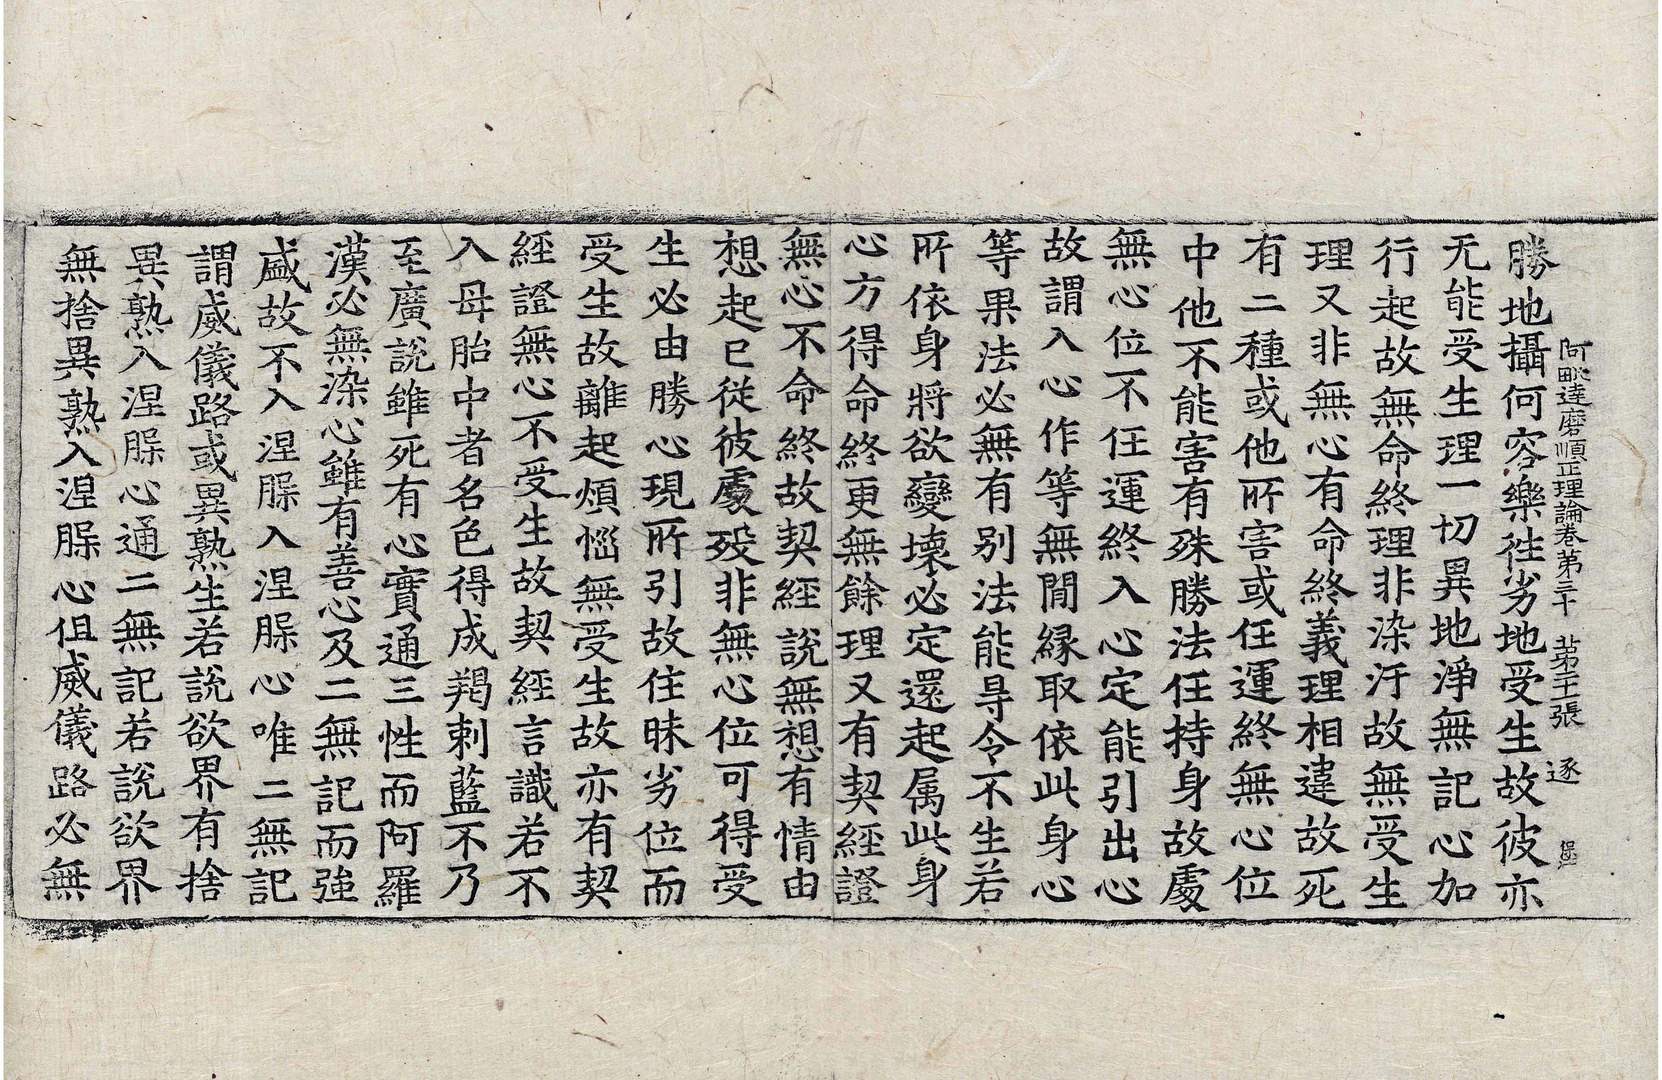 阿毗達磨順正理論卷第三十　苐十一張　逐
勝地攝何容樂徃劣地受生故彼亦
无能受生理一切異地淨無記心加
行起故無命終理非染汙故無受生
理又非無心有命終義理相違故死
有二種或他所害或任運終無心位
中他不能害有殊勝法任持身故處
無心位不任運終入心定能引出心
故謂入心作等無間縁取依此身心
等果法必無有别法能㝵令不生若
所依身將欲變壞必定還起属此身
心方得命終更無餘理又有契經證
無心不命終故契經說無想有情由
想起已從彼處殁非無心位可得受
生必由勝心現所引故住昧劣位而
受生故離起煩惱無受生故亦有契
經證無心不受生故契經言識若不
入母胎中者名色得成羯剌藍不乃
至廣說雖死有心實通三性而阿羅
漢必無染心雖有善心及二無記而強
盛故不入涅槃入涅槃心唯二無記
謂威儀路或異熟生若說欲界有捨
異熟入涅槃心通二無記若說欲界
無捨異熟入涅槃心但威儀路必無